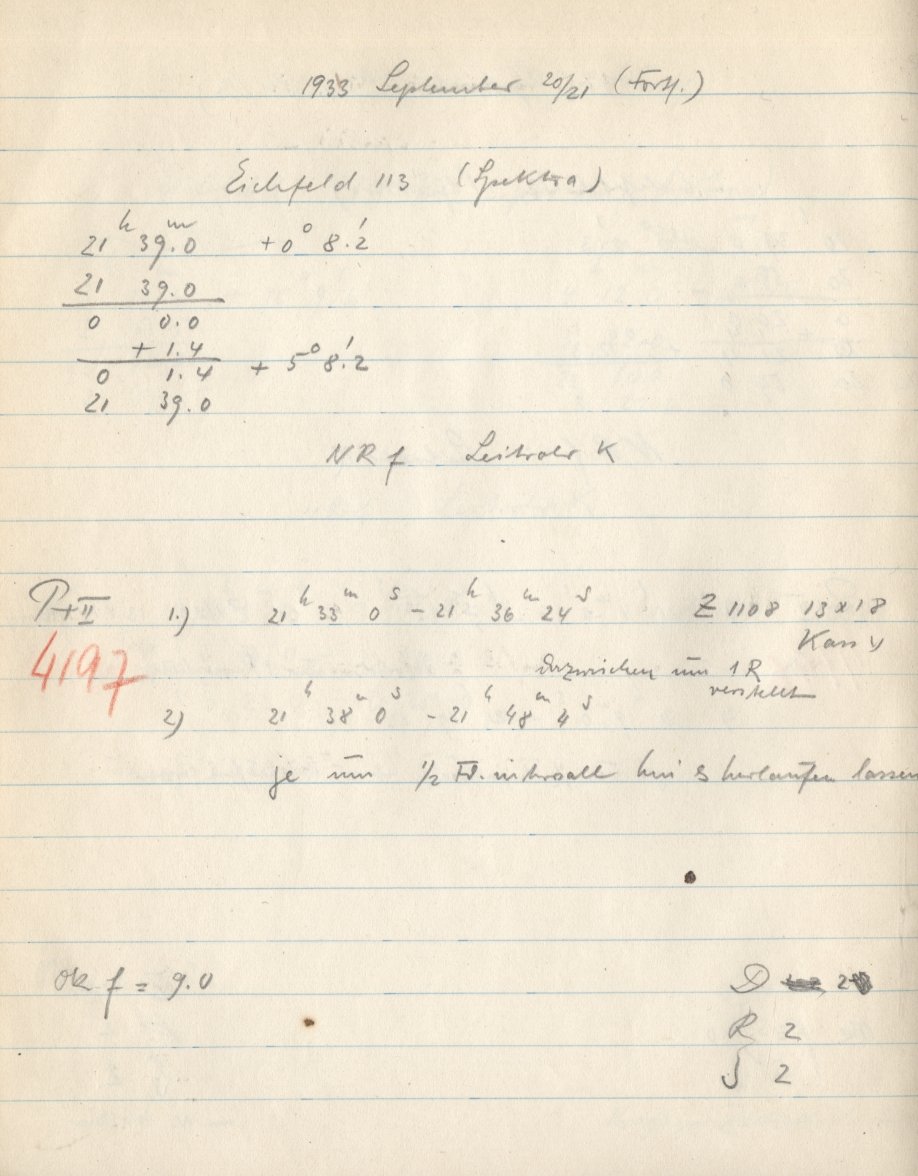 1933 September 20/21 (Forts.)
Eichfeld 113 (Spektra)
21 h 39.0 m +0° 8.'2
21 39.0
0 0.0
+ 1.4
0 1.4 + 5° 8.'2
21 39.0
NR f Leitrohr K
P+II 1.) 21 h 33 m 0 s - 21 h 36 m 24 s Z 1108 13x18
Kass V
4197 dazwischen um 1R
verstellt
2) 21 h 38 m 0 s - 21 h 48 m 4 s
je um 1/2 Fd. intervall hin & herlaufen lassen
Ok f = 9.0 D 2
R 2
S 2